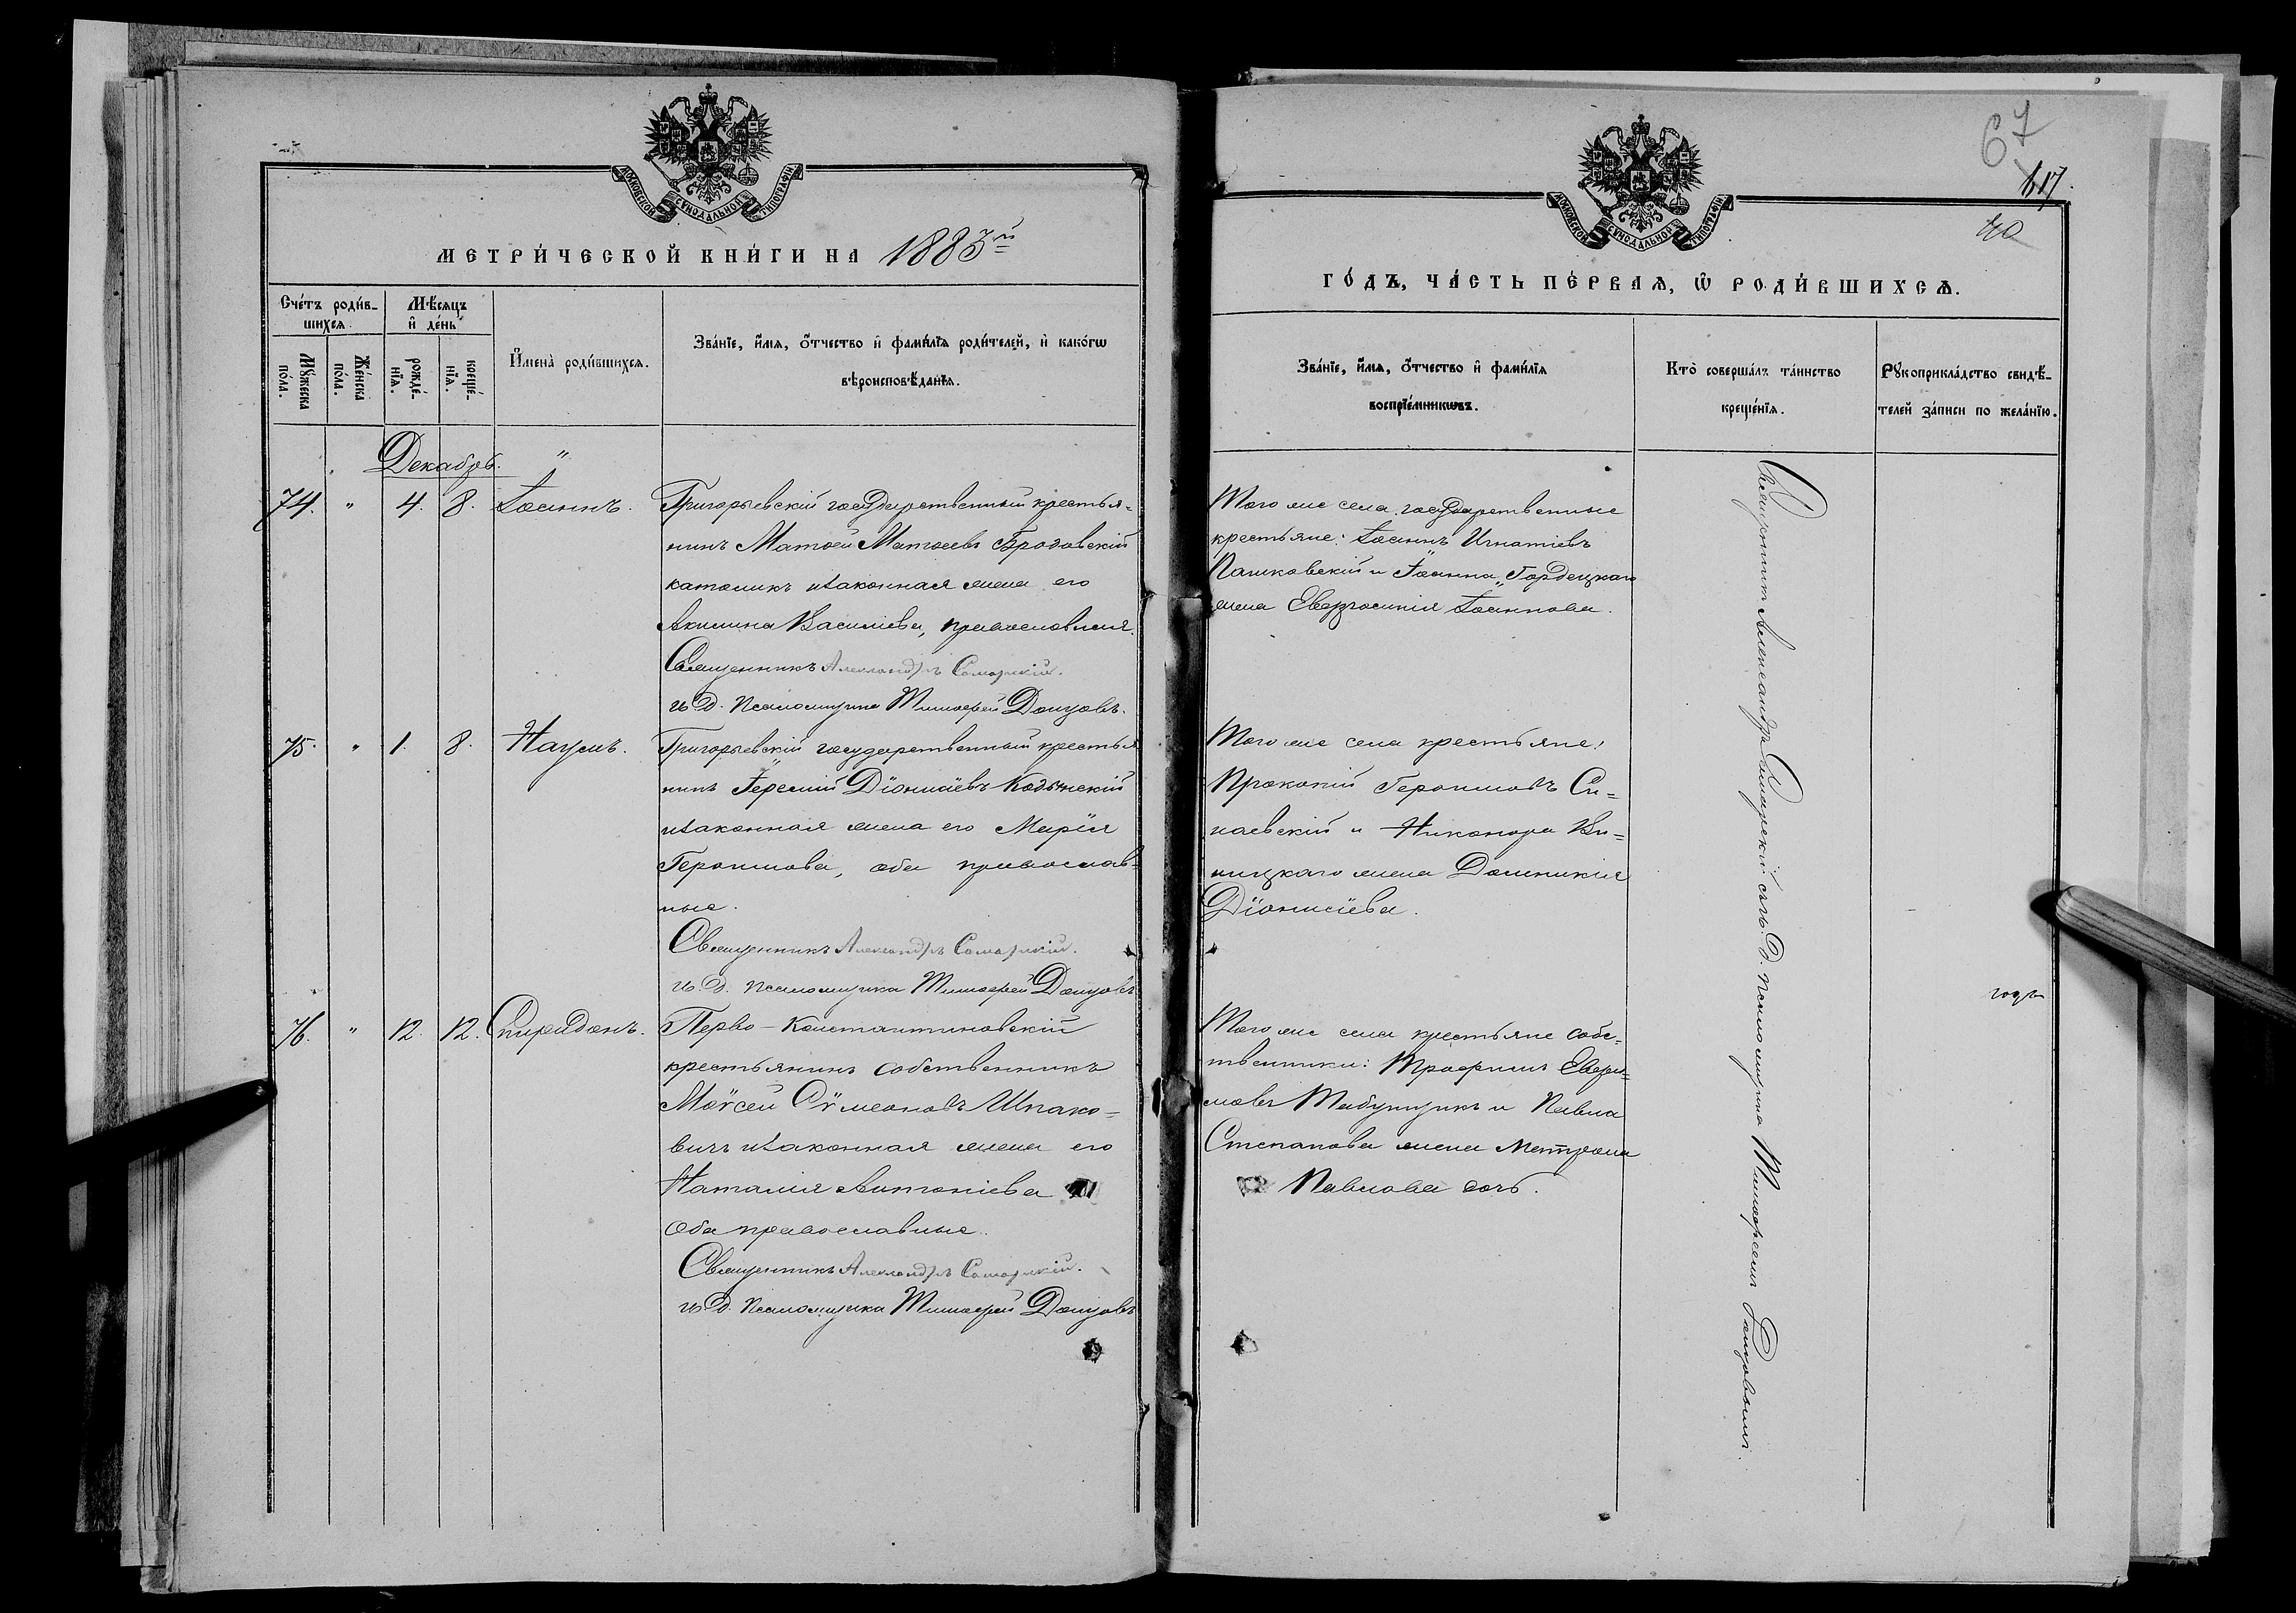 МОСКОВСКОЙ СѴНОДАЛЬНОЙ ТИПОГРАФІИ
МЕТРИ́ЧЕСКОЙ КНИ́ГИ НА 1883й
Сче́тъ роди́в-
шихся.
Мѣ́сяцъ
и҆ де́нь
Мꙋ́жеска
по́ла.
Же́нска
по́ла.
рожде́-
нїя.
креще́-
нїя.
И҆мена̀ роди́вшихся.
Зва́нїе, и҆́мя, ѻ҆́тчество и҆ фами́лїя роди́телей, и҆ како́гѡ
вѣроисповѣ́данїя.
Декабрь. "
74. " 4. 8. Іоаннъ.
Григорьевскій государственный крестья=
нинъ Матѳей Матѳеевъ Бродовскій
католикъ и законная жена его
Акилина Василіева, православная.
Священникъ Александръ Самарскій.
и. д. псаломщика Тимофей Донцовъ.
75. " 1. 8. Наумъ.
Григорьевскій государственный крестья
нинъ Іеремій Діонисіевъ Кодынскій
и законная жена его Марія
Героимова, оба православ=
ные.
Священникъ Александръ Самарскій.
и. д. псаломщика Тимофей Донцовъ
76. " 12. 12. Спиридонъ.
Перво-Константиновскій
крестьянинъ собственникъ
Моѵсей Сѵмеоновъ Шпако=
вичъ и законная жена его
Наталія Антоніева
оба православные.
Священникъ Александръ Самарскій.
и. д. псаломщика Тимофей Донцовъ
67
117.
40
МОСКОВСКОЙ СѴНОДАЛЬНОЙ ТИПОГРАФІИ
ГО́ДЪ, ЧА́СТЬ ПЕ́РВАЯ, Ѽ РОДИ́ВШИХСЯ.
Зва́нїе, и҆́мя, ѻ҆́тчество и҆ фами́лїя
воспрїе́мникѡвъ.
Кто̀ соверша́лъ та́инство
креще́нїя.
Рꙋкоприкла́дство свидѣ́-
телей за́писи по жела́нїю.
Того же села государственные
крестьяне: Іоаннъ Игнатіевъ
Пашковскій и Іоанна Гордецкаго
жена Евфросинія Іоаннова.
Того же села крестьяне:
Прокопій Героимовъ Си=
наевскій и Никанора Ви=
ницкаго жена Домникія
Діонисіева.
Того же села крестьяне собс=
твенники: Трофимъ Евфи=
мовъ Табунщикъ и Павла
Степанова жена Матрона
Павлова дочь.
Священникъ Александръ Самарскій съ и. д. псаломщика Тимофеемъ Донцовымъ.
годъ